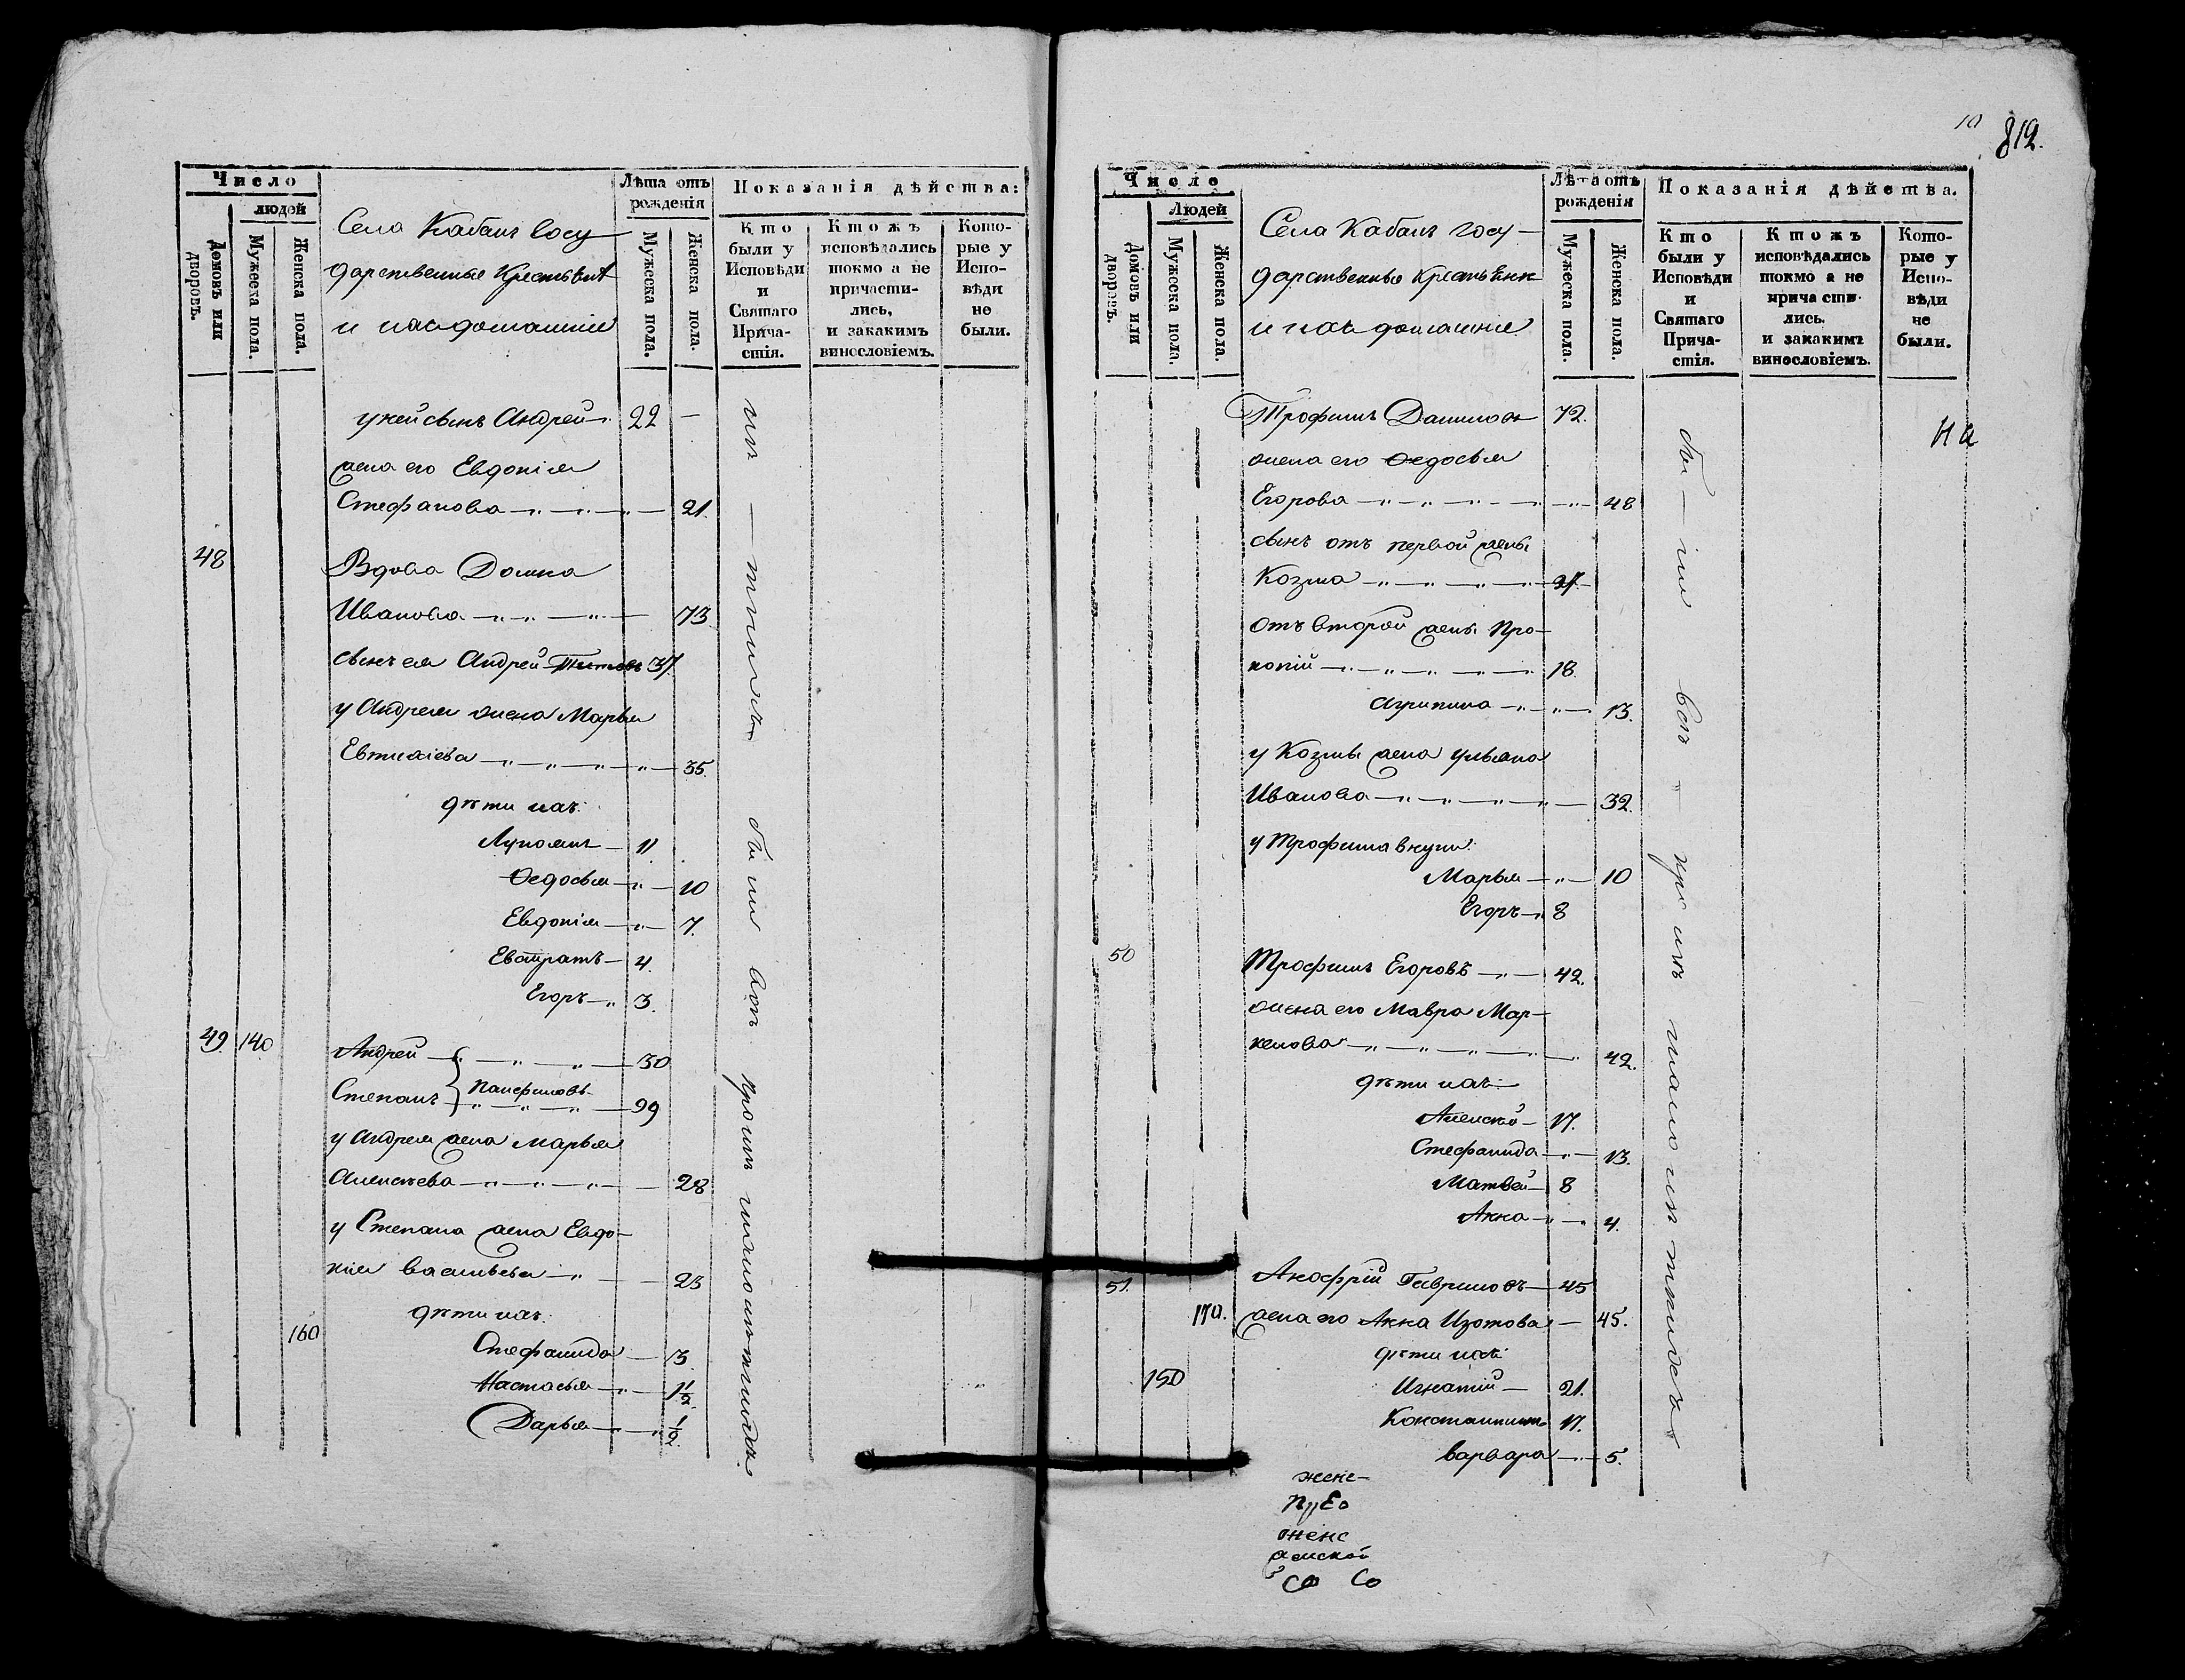 Число
людей
Домовъ или дворовъ.
Мужеска пола.
Женска пола.
Села Кабанъ Госу
дарственные Крестьяне
и ихъ домашніе
Лѣта отъ
рожденія
Мужеска пола.
Женска пола.
Показанія дѣйства:
Кто
были у
Исповѣди
и
Святаго
Прича-
стія.
Ктожъ
исповѣдались
токмо а не
причасти-
лись,
и закакимъ
винословіемъ.
Кото-
рые у
Испо-
вѣди
не
были.
у ней сынъ Андрей 22 —
жена его Евдокія
Стефанова — 21.
48 Вдова Домна
Иванова — 73.
сынъ ея Андрей Титовъ 37.
у Андрея жена Марья
Евтихіева — 35.
дѣти ихъ:
11.
Ѳедосья — 10
Евдокія — 7.
Евстратъ — 4.
Егоръ — 3.
49. 140 Андрей — 30
Степанъ } Панфиловы — 29
у Андрея жена Марья
Алексѣева — 28
у Степана жена Евдо-
кія Васильева — 23
дѣти ихъ:
160
Стефанида — 3.
Настасья — 1½.
Дарья — ½.
были вси
10 812.
Число
Людей
Домовъ или дворовъ.
Мужеска пола.
Женска пола.
Села Кабанъ Госу-
дарственные Крестьяне
и ихъ домашніе
Лѣта отъ
рожденія
Мужеска пола.
Женска пола.
Показанія дѣйства.
Кто
были у
Исповѣди
и
Святаго
Прича-
стія.
Ктожъ
исповѣдались
токмо а не
причасти-
лись.
и закакимъ
винословіемъ.
Кото-
рые у
Испо-
вѣди
не
были.
Трофимъ Даниловъ 72.
жена его Ѳедосья
Егорова — 48
сынъ отъ первой жены
Козма — 37.
отъ второй жены Про-
копій — 18.
Агрипина — 13.
у Козмы жена Ульяна
Иванова — 32.
у Трофима внуки:
Марья — 10
Егоръ — 8
50 Трофимъ Егоровъ — 42.
жена его Мавра Мар-
келова — 42.
дѣти ихъ:
Алексѣй — 17.
Стефанида — 13.
Матвей — 8
Анна — 4.
51. Анофрій Гавриловъ — 45
170. жена его Анна Изотова — 45.
дѣти ихъ:
150 Игнатій — 21.
Константинъ 17.
Варвара — 5.
были вси
на
женс-
женс